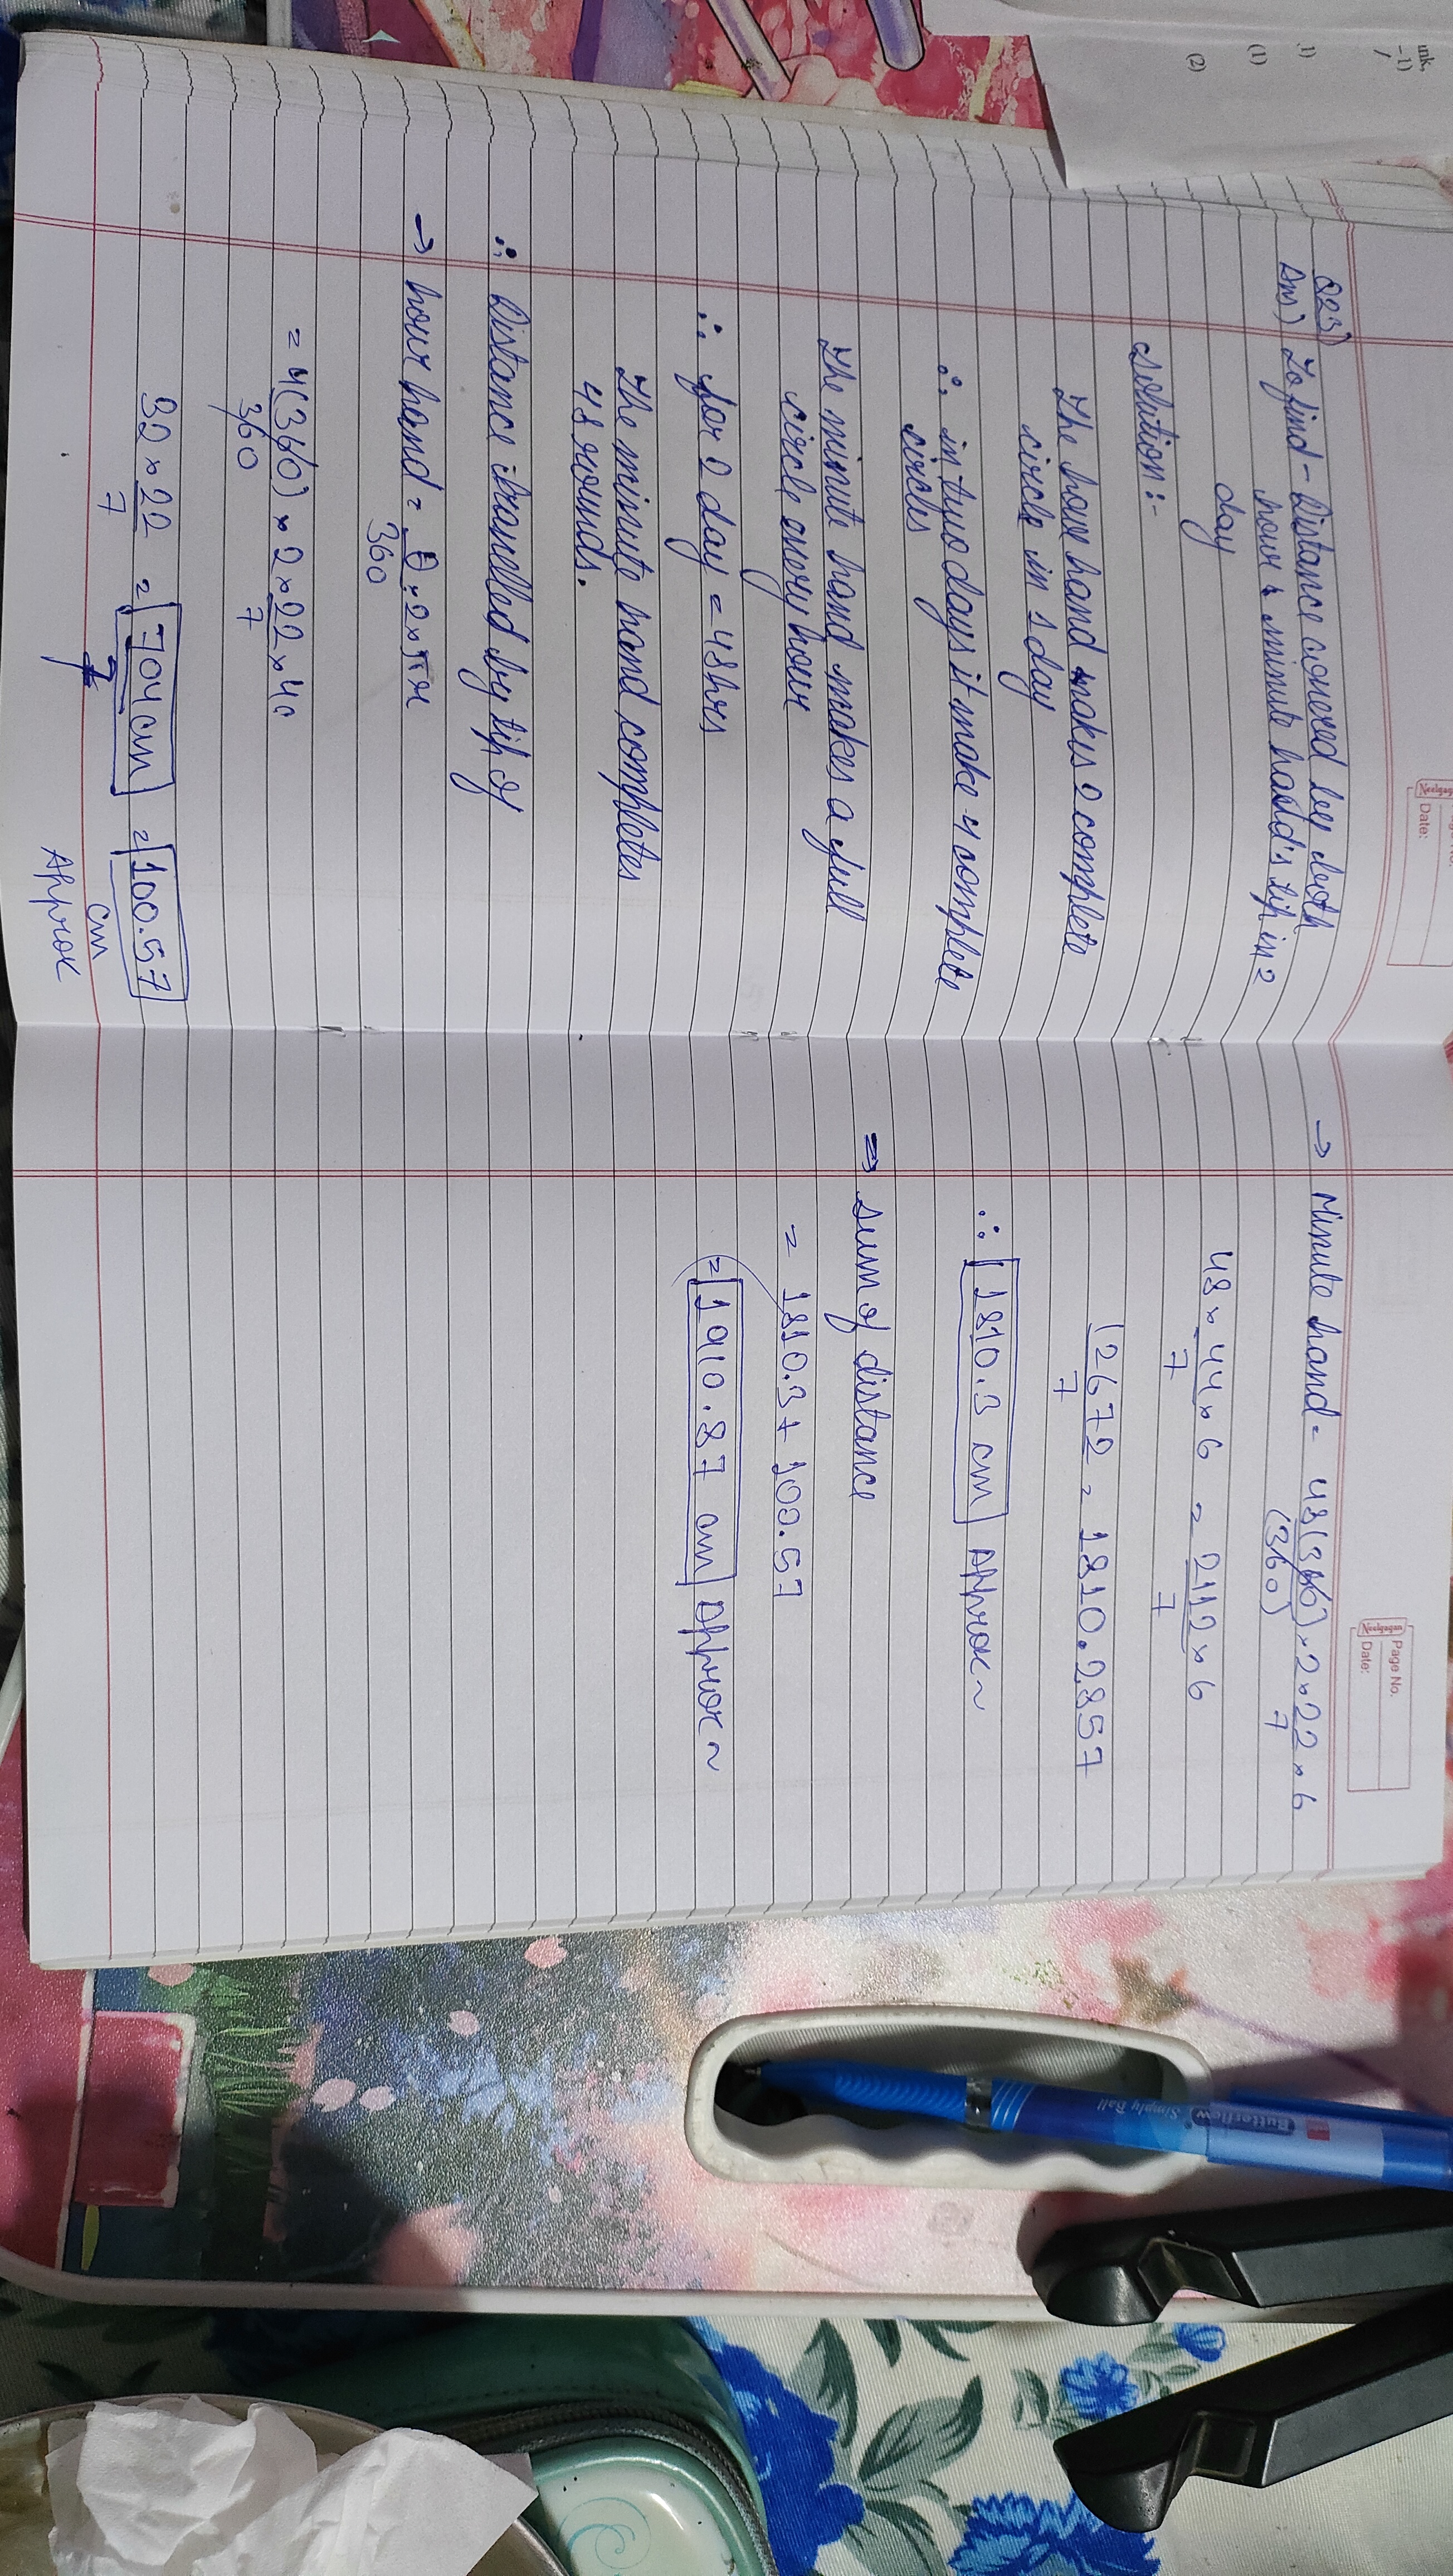 Neelgagan
Date:
Q23)
Ans) To find - Distance covered by both
hour & minute hand's tip in 2
day
Solution :-
The hour hand makes 2 complete
circle in 1 day
∴ in two days it make 4 complete
circles
The minute hand makes a full
circle every hour
∴ for 2 day = 48hrs
The minute hand completes
48 rounds.
∴ Distance travelled by tip of
→ hour hand = θ/360 × 2 × πr
= 4(360)/360 × 2 × 22/7 × 4
32 × 22/7 = 704 cm/7 = 100.57
cm
Approx
Neelgagan
Page No.
Date:
→ Minute hand = 48(360)/(360) × 2 × 22/7 × 6
48 × 44/7 × 6 = 2112/7 × 6
12672/7 = 1810.2857
∴ 1810.3 cm Approx ~
⇒ sum of distance
= 1810.3 + 100.57
= 1910.87 cm Approx ~
ink,
-1)
1)
(1)
(2)
Butterflow
Simply Ball